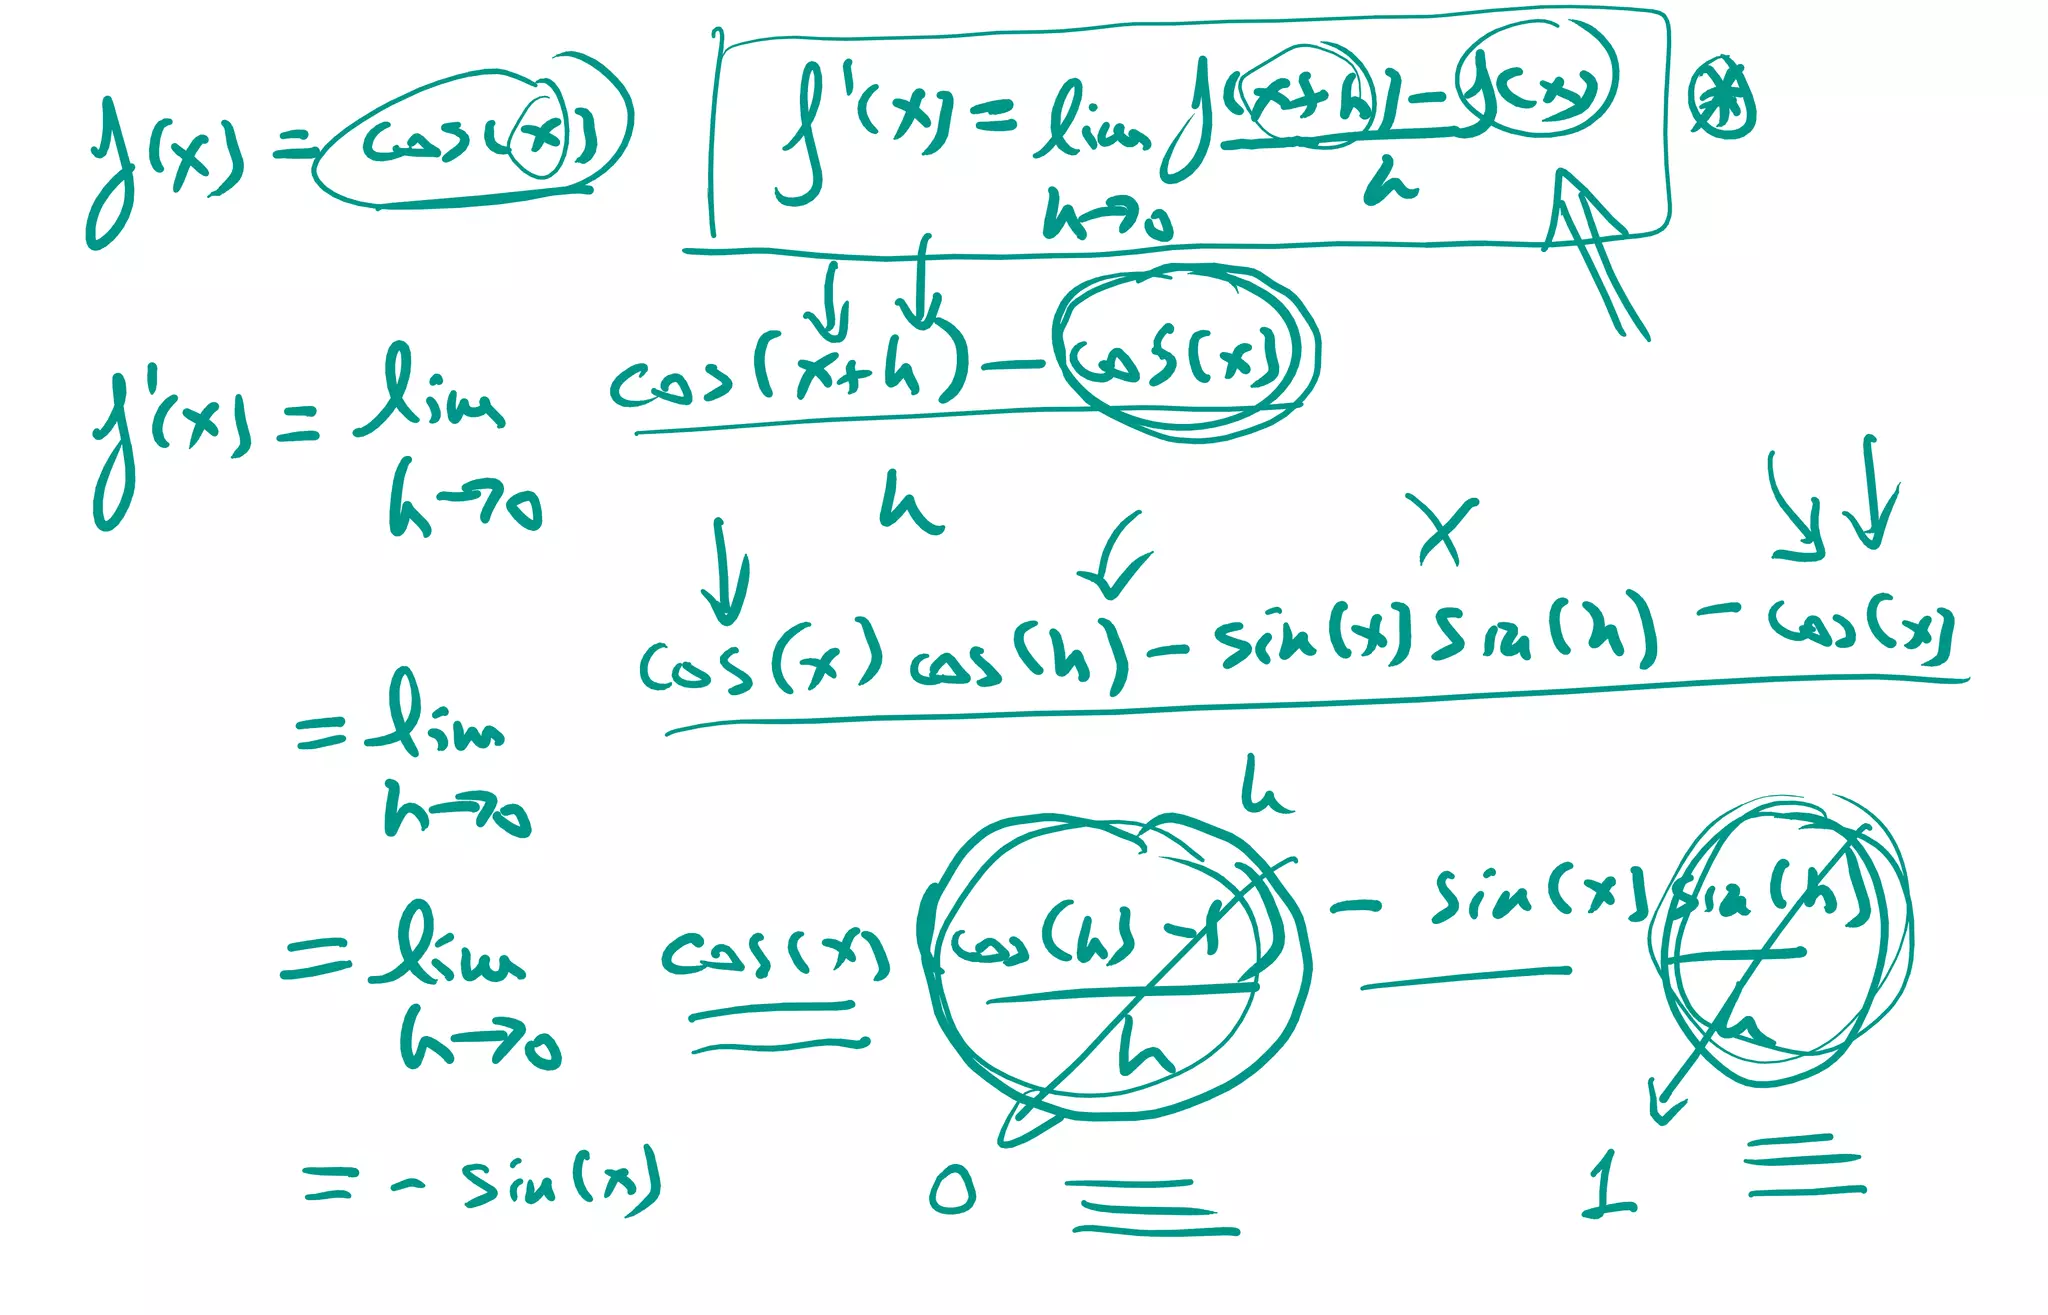 f(x) = cos(x)
f'(x) = lim h→0 (f(x+h) - f(x))/h ⊛
f'(x) = lim h→0 (cos(x+h) - cos(x))/h
= lim h→0 (cos(x)cos(h) - sin(x)sin(h) - cos(x))/h
= lim h→0 cos(x) (cos(h) - 1)/h - sin(x) sin(h)/h
= - sin(x) 0 1